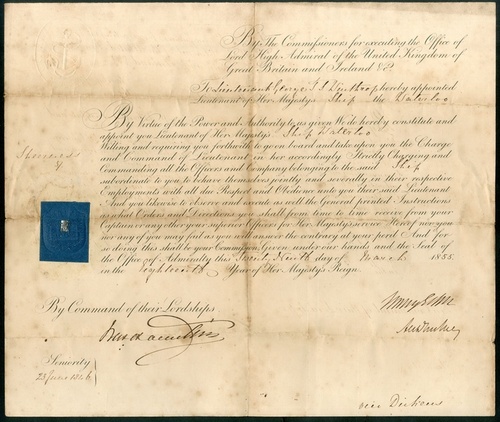 By The Commissioners for executing the Office of
Lord High Admiral of the United Kingdom of
Great Britain and Ireland &c
To Lieutenant George hereby appointed
Lieutenant of Her Majesty's Ship the Waterloo
By Virtue of the Power and Authority to us given We do hereby constitute and
appoint you Lieutenant of Her Majesty's Ship Waterloo
Willing and requiring you forthwith to go on board and take upon you the Charge
and Command of Lieutenant in her accordingly Strictly Charging and
Commanding all the Officers and Company belonging to the said Ship
subordinate to you to behave themselves jointly and severally in their respective
Employments with all due Respect and Obedience unto you their said Lieutenant
And you likewise to observe and execute as well the General printed Instructions
as what Orders and Directions you shall from time to time receive from your
Captain or any other your superior Officers for Her Majesty's service Hereof nor you
nor any of you may fail as you will answer the contrary at your peril And for
so doing this shall be your Commission Given under our hands and the Seal of
the Office of Admiralty this day of March 1855
in the Eighteenth Year of Her Majesty's Reign.
By Command of their Lordships
Seniority
23 June 1846
vice Dickens